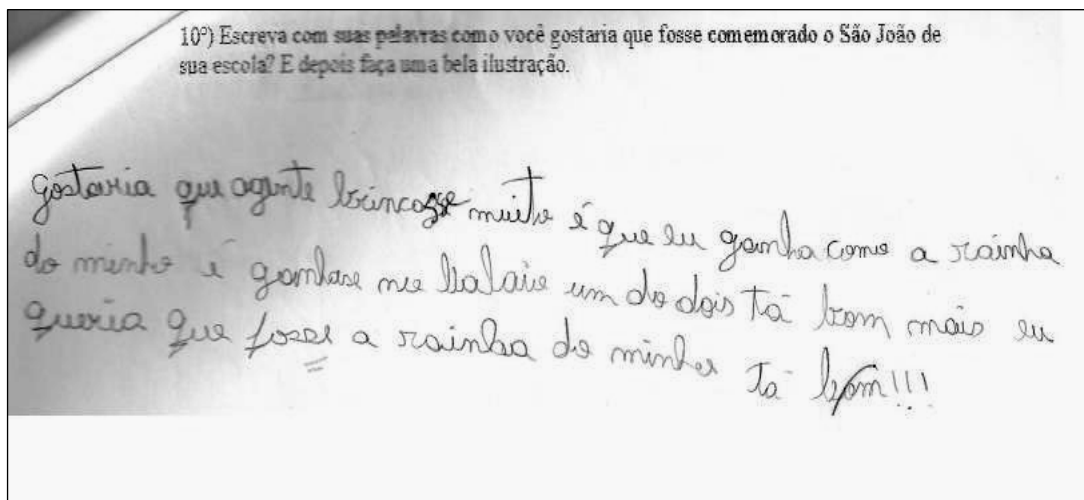 10º) Escreva com suas palavras como você gostaria que fosse comemorado o São João de
sua escola? E depois faça uma bela ilustração.
gostaria que agente brincasse muito é que eu ganha como a rainha
do minho i ganhase no balaio um do dois tá bom mais eu
queria que fosse a rainha do minho tá bom!!!